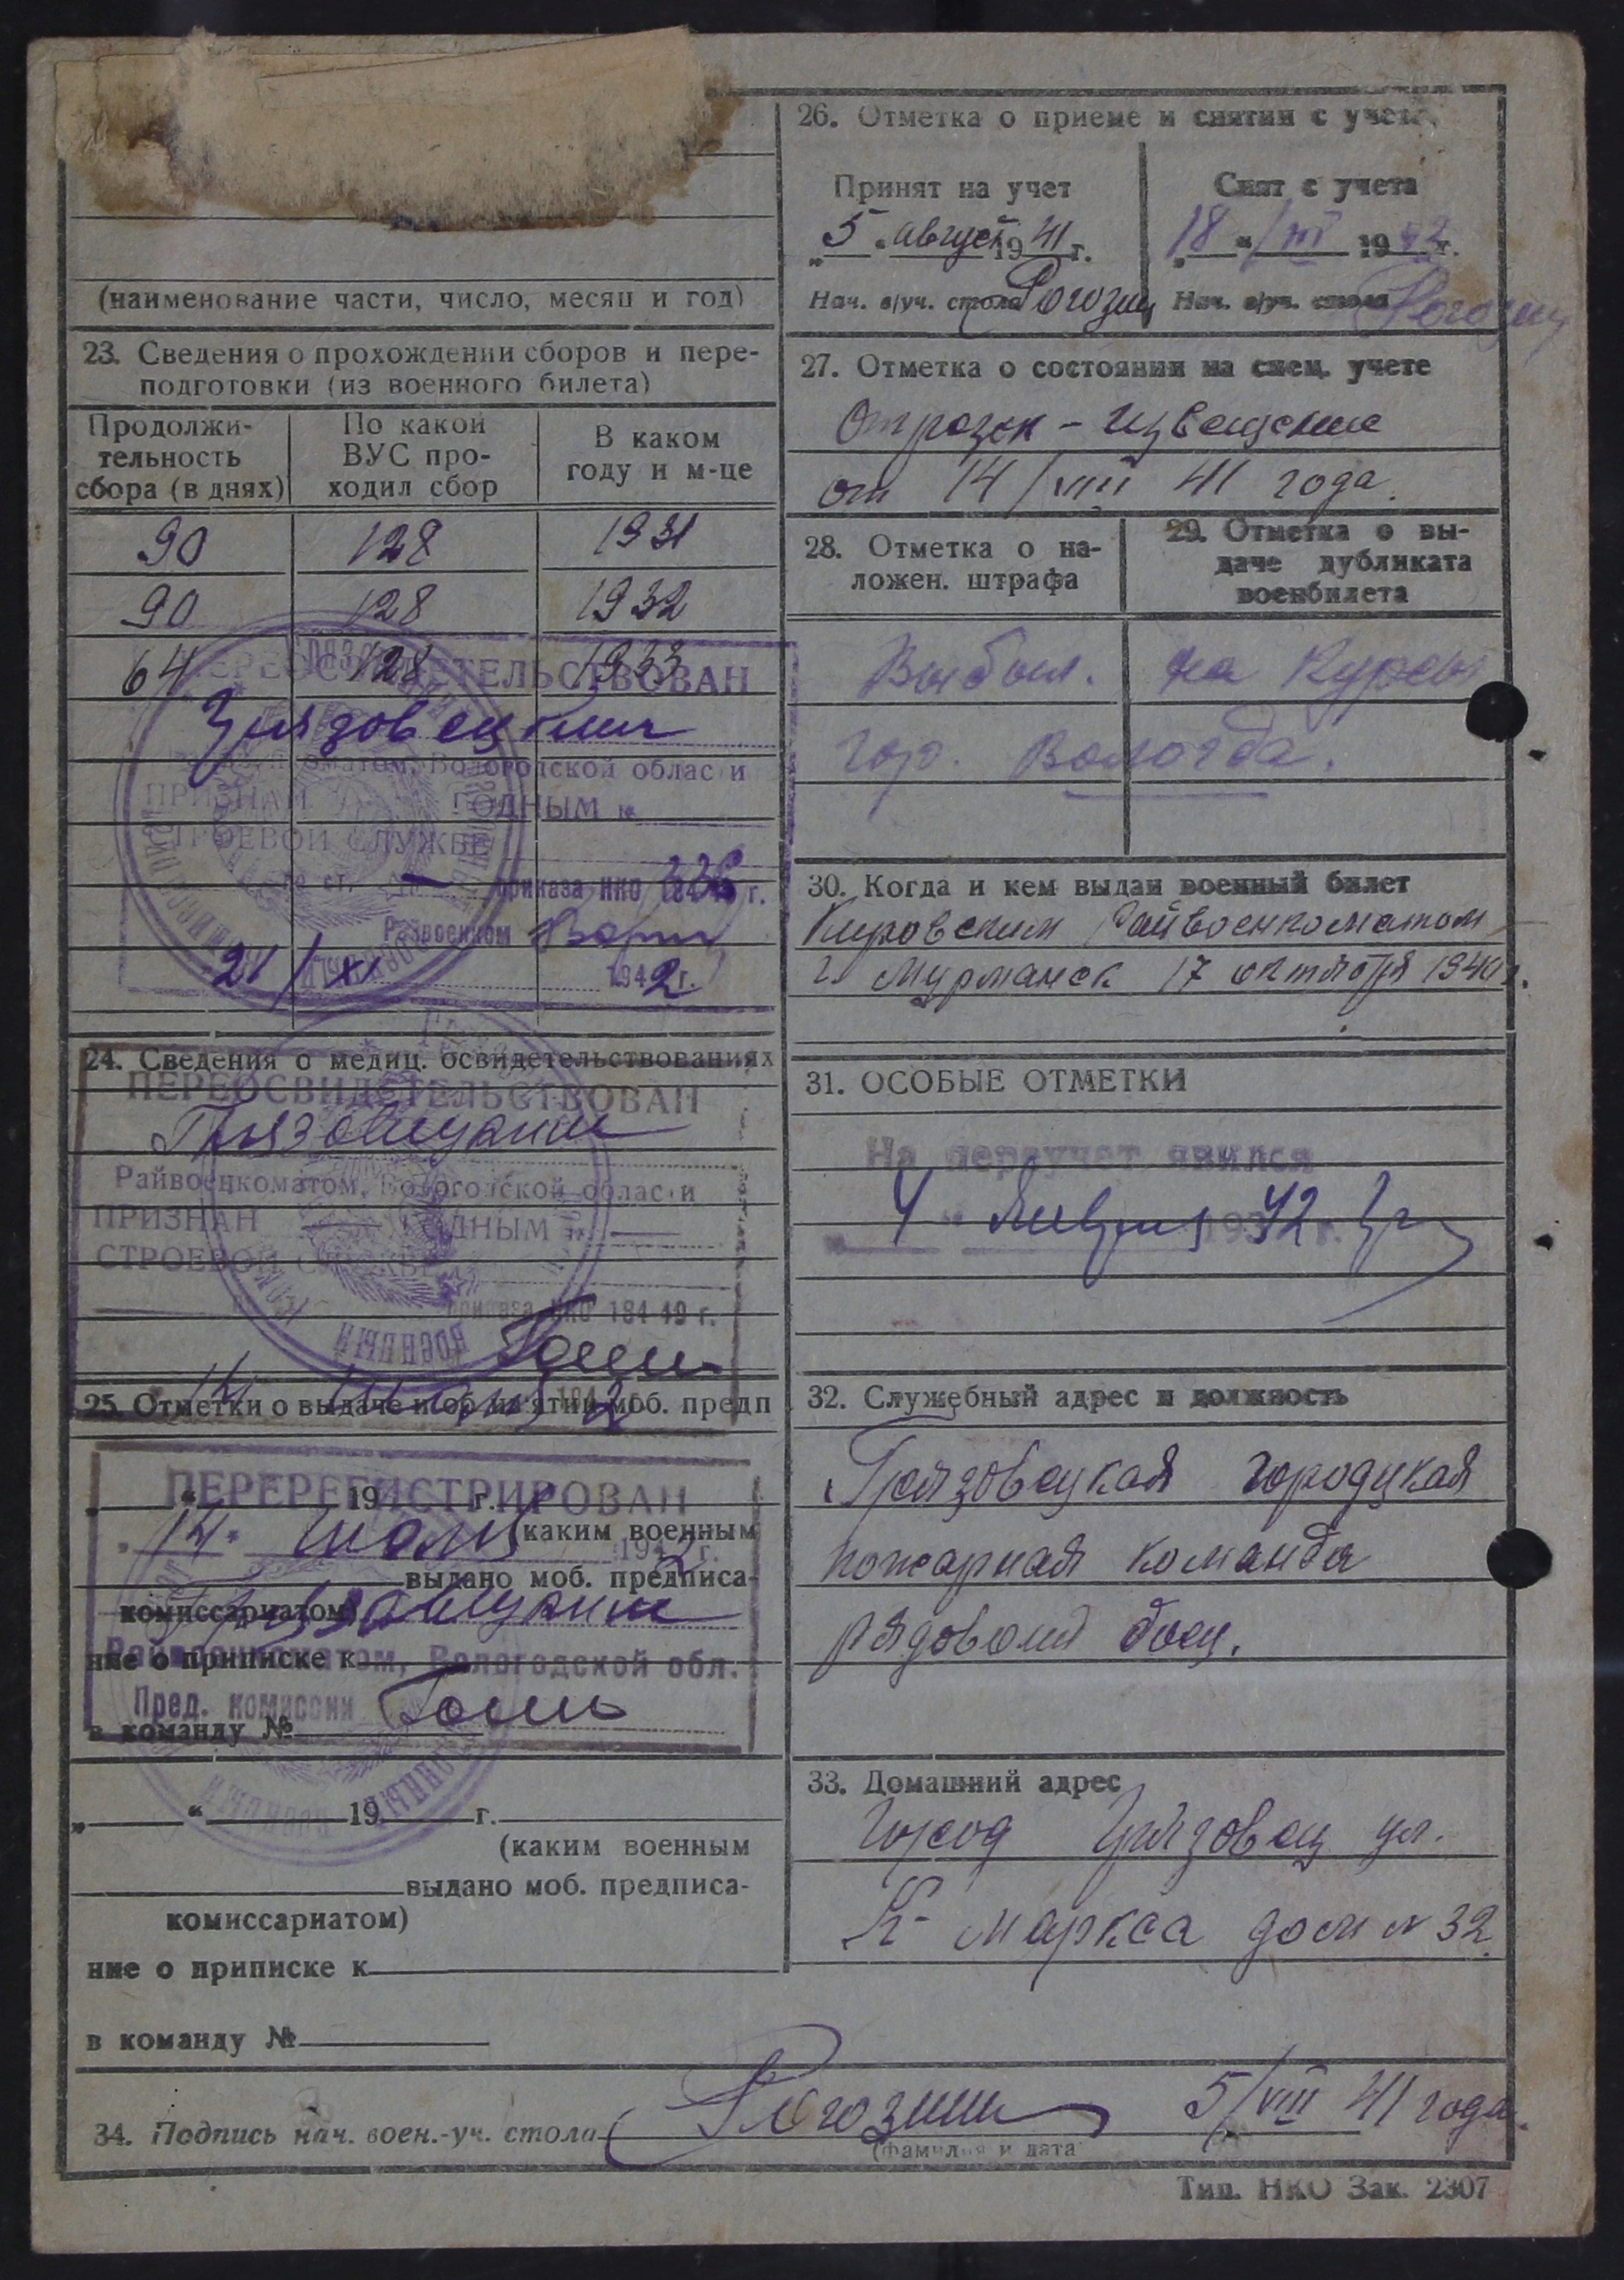 (наименование части, число, месяц и год)
23. Сведения о прохождении сборов и пере-
подготовки (из военного билета)
Продолжи-
тельность
сбора (в днях)
По какой
ВУС про-
ходил сбор
В каком
году и м-це
90 128 1931
90 128 1932
64 128 1933
ПЕРЕОСВИДЕТЕЛЬСТВОВАН
Грязовецким
Райвоенкоматом, Вологодской области
ПРИЗНАН ГОДНЫМ к
СТРОЕВОЙ СЛУЖБЕ
по ст. приказа НКО 336 г.
Райвоенком
21/XI 1942 г.
24. Сведения о медиц. освидетельствованиях
ПЕРЕОСВИДЕТЕЛЬСТВОВАН
Грязовецким
Райвоенкоматом, Вологодской области
ПРИЗНАН ГОДНЫМ к
СТРОЕВОЙ СЛУЖБЕ
приказа НКО 184-19 г.
14 194 2
25. Отметки о выдаче и об изъятии моб. предп
ПЕРЕРЕГИСТРИРОВАН
„ “ 19 г.
„14“ июля 1942 г.
(каким военным
выдано моб. предписа-
комиссариатом)
Грязовецким
ние о приписке к
Райвоенкоматом, Вологодской обл.
Пред. комиссии
в команду №
„ “ 19 г.
(каким военным
выдано моб. предписа-
комиссариатом)
ние о приписке к
в команду №
26. Отметка о приеме и снятии с учета.
Принят на учет
„5“ август 1941 г.
Нач. в/уч. стола Рогозин
Снят с учета
„18“/III 1942 г.
Нач. в/уч. стола Рогозин
27. Отметка о состоянии на спец. учете
Отрезек - извещение
от 14/VIII 41 года.
28. Отметка о на-
ложен. штрафа
29. Отметка о вы-
даче дубликата
военбилета
Выбыл. на Курсы
гор. Вологда.
30. Когда и кем выдан военный билет
Кировским Райвоенкоматом
г. Мурманск 17 октября 1940 г.
31. ОСОБЫЕ ОТМЕТКИ
На переучет явился
„4“ января 1942 г.
32. Служебный адрес и должность
Грязовецкая городцкая
пожарная команда
рядовой боец.
33. Домашний адрес
Город Грязовец ул.
К-Маркса дом № 32.
34. Подпись нач. воен.-уч. стола Рогозин 5/VIII 41 года.
(фамилия и дата
Тип. НКО Зак. 2307